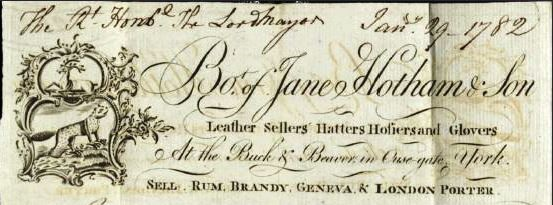 The Rt. Honble. The Lord Mayor Jany. 29 1782
Bot. of Jane Hotham & Son
Leather Sellers Hatters Hosiers and Glovers
At the Buck & Beaver in Ouse-gate, York.
SELL, RUM, BRANDY, GENEVA, & LONDON PORTER.